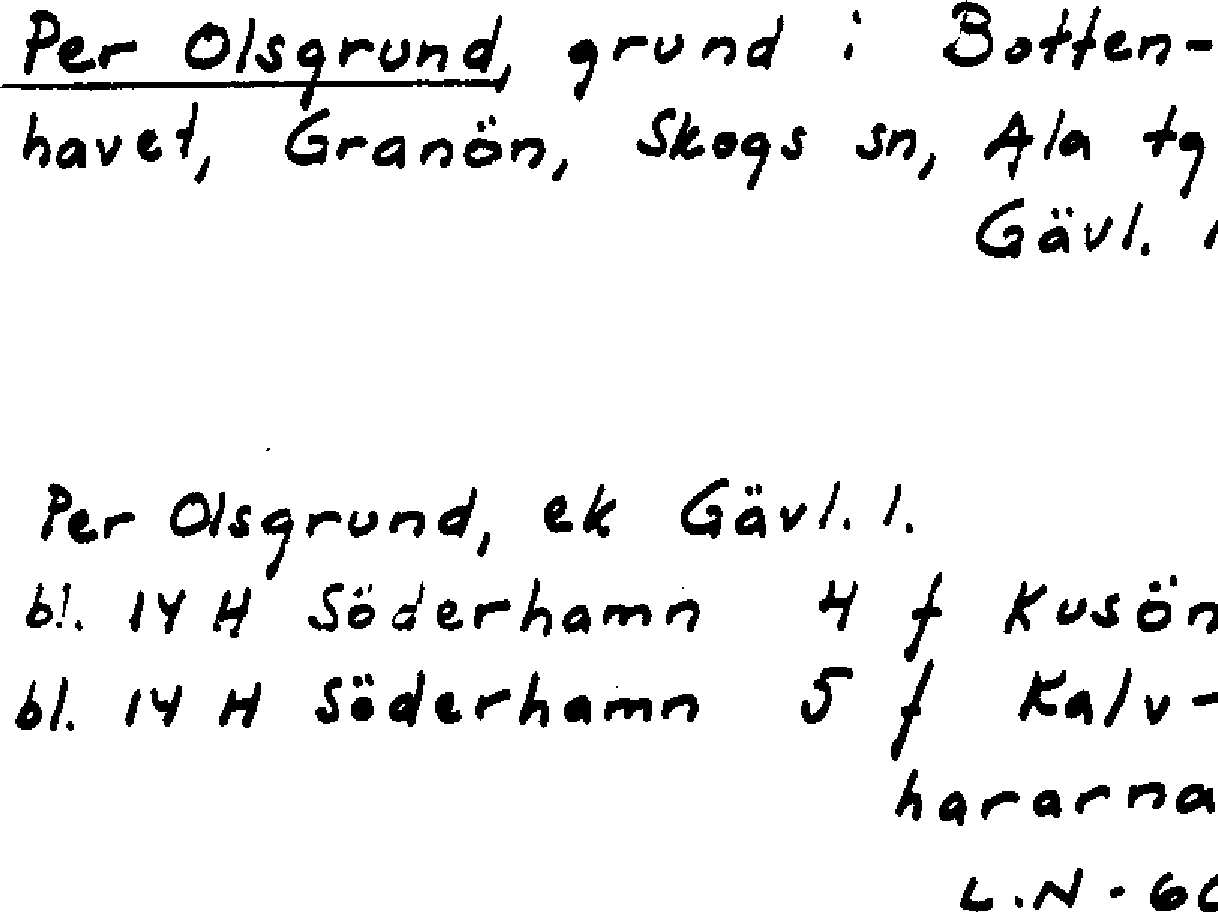 Per Olsgrund, grund i Botten-
havet, Granön, Skogs sn, Ala tg
Gävl.
Per Olsgrund, ek Gävl. l.
bl. 14 H Söderhamn 4 f Kusön
bl. 14 H Söderhamn 5 f Kalv-
hararna
L.N -